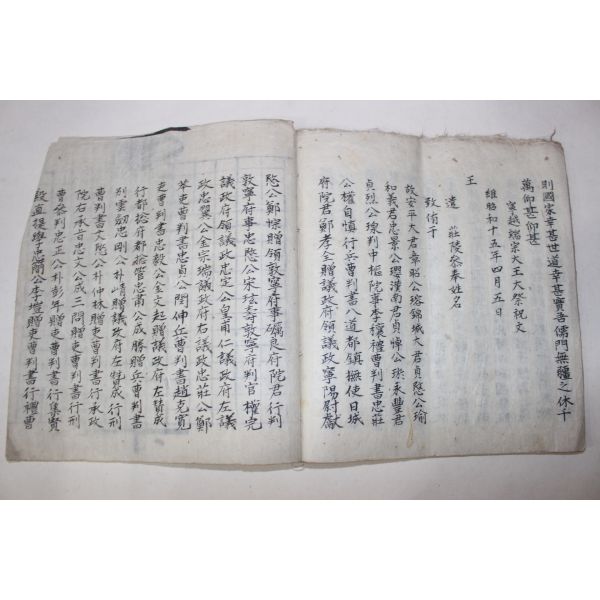 則國家幸甚世道幸甚實吾儒門無疆之休千
萬仰甚仰甚
寧越端宗大王大祭祝文
維昭和十五年四月五日
王
遣 莊陵叅奉姓名
致侑于
故安平大君章昭公瑢錦城大君貞愍公瑜
和義君忠景公瓔漢南君貞悼公 永豐君
貞烈公瑔判中樞院事李穰禮曹判書忠莊
公權自愼行兵曹判書八道都鎭撫使日城
府院君鄭孝全贈議政府領議政寧陽尉獻
愍公鄭悰贈領敦寧府事礪良府院君行判
敦寧府事忠愍公宋玹壽敦寧府判官權完
議政府領議政忠定公皇甫仁議政府左議
政忠翼公金宗瑞議政府右議政忠莊公鄭
苯吏曹判書忠貞公閔伸兵曹判書趙克寬
吏曹判書忠毅公金文起贈議政府左賛成
行都摠府都摠管忠肅公成勝贈兵曹判書
別雲劒忠剛公朴崝贈議政府左賛成行刑
曹判書大愍公朴仲林贈吏曹判書行承政
院右承旨忠文公成三問贈吏曹判書行刑
曹叅判忠正公朴彭年贈吏曹判書行集賢
殿直提學忠簡公李塏贈吏曹判書行禮曹